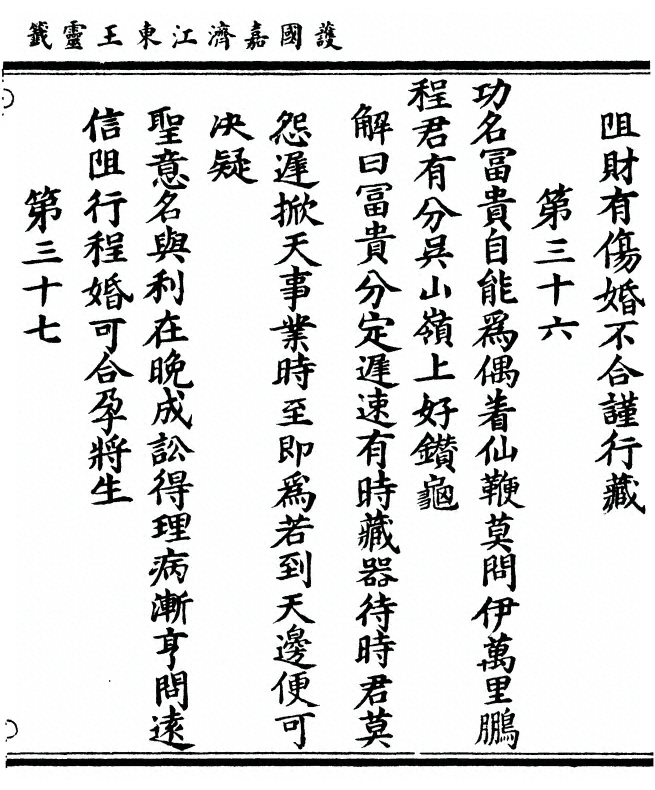 護國嘉濟江東王靈籤
阻財有傷婚不合謹行藏
第三十六
功名冨貴自能爲偶着仙鞭莫問伊萬里鵬
程君有分吳山嶺上好鑚龜
解曰冨貴分定遲速有時藏器待時君莫
怨遲掀天事業時至即爲若到天邊便可
决疑
聖意名與利在晚成訟得理病漸亨問遠
信阻行程婚可合孕將生
第三十七